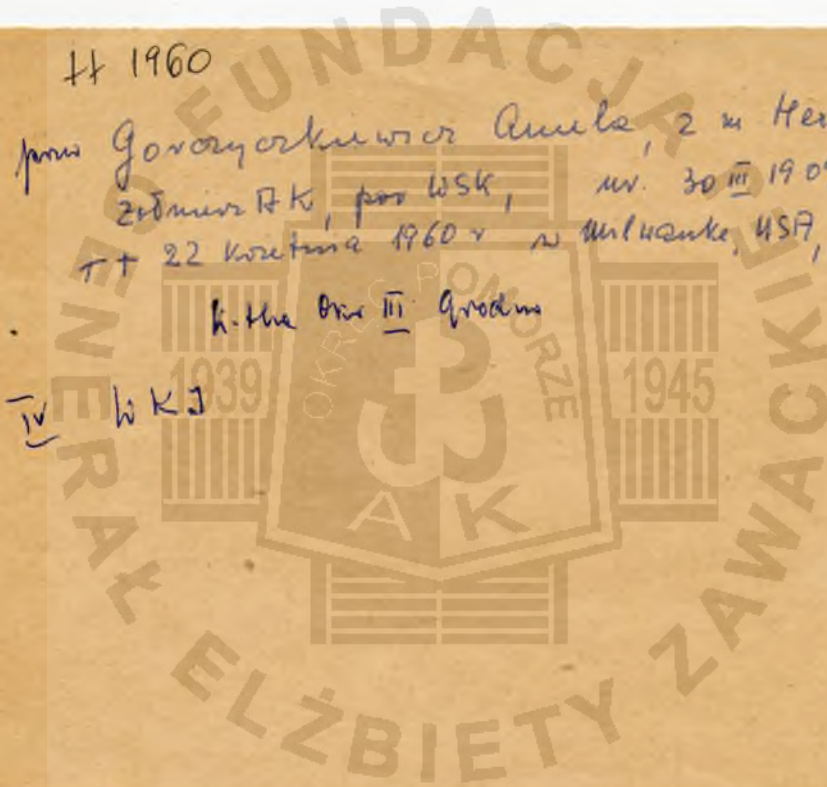 †† 1960
Gorczyczkiewicz Aniela, z m
żołnierz AK, por WSK, ur. 30 III 190
†† 22 kwietnia 1960 r w Milwauke, USA,
K-tka Okr III Grodno
IV W K J
FUNDACJA
GENERAŁ ELŻBIETY ZAWACKIEJ
OKRĘG POMORZE
1939
1945
AK